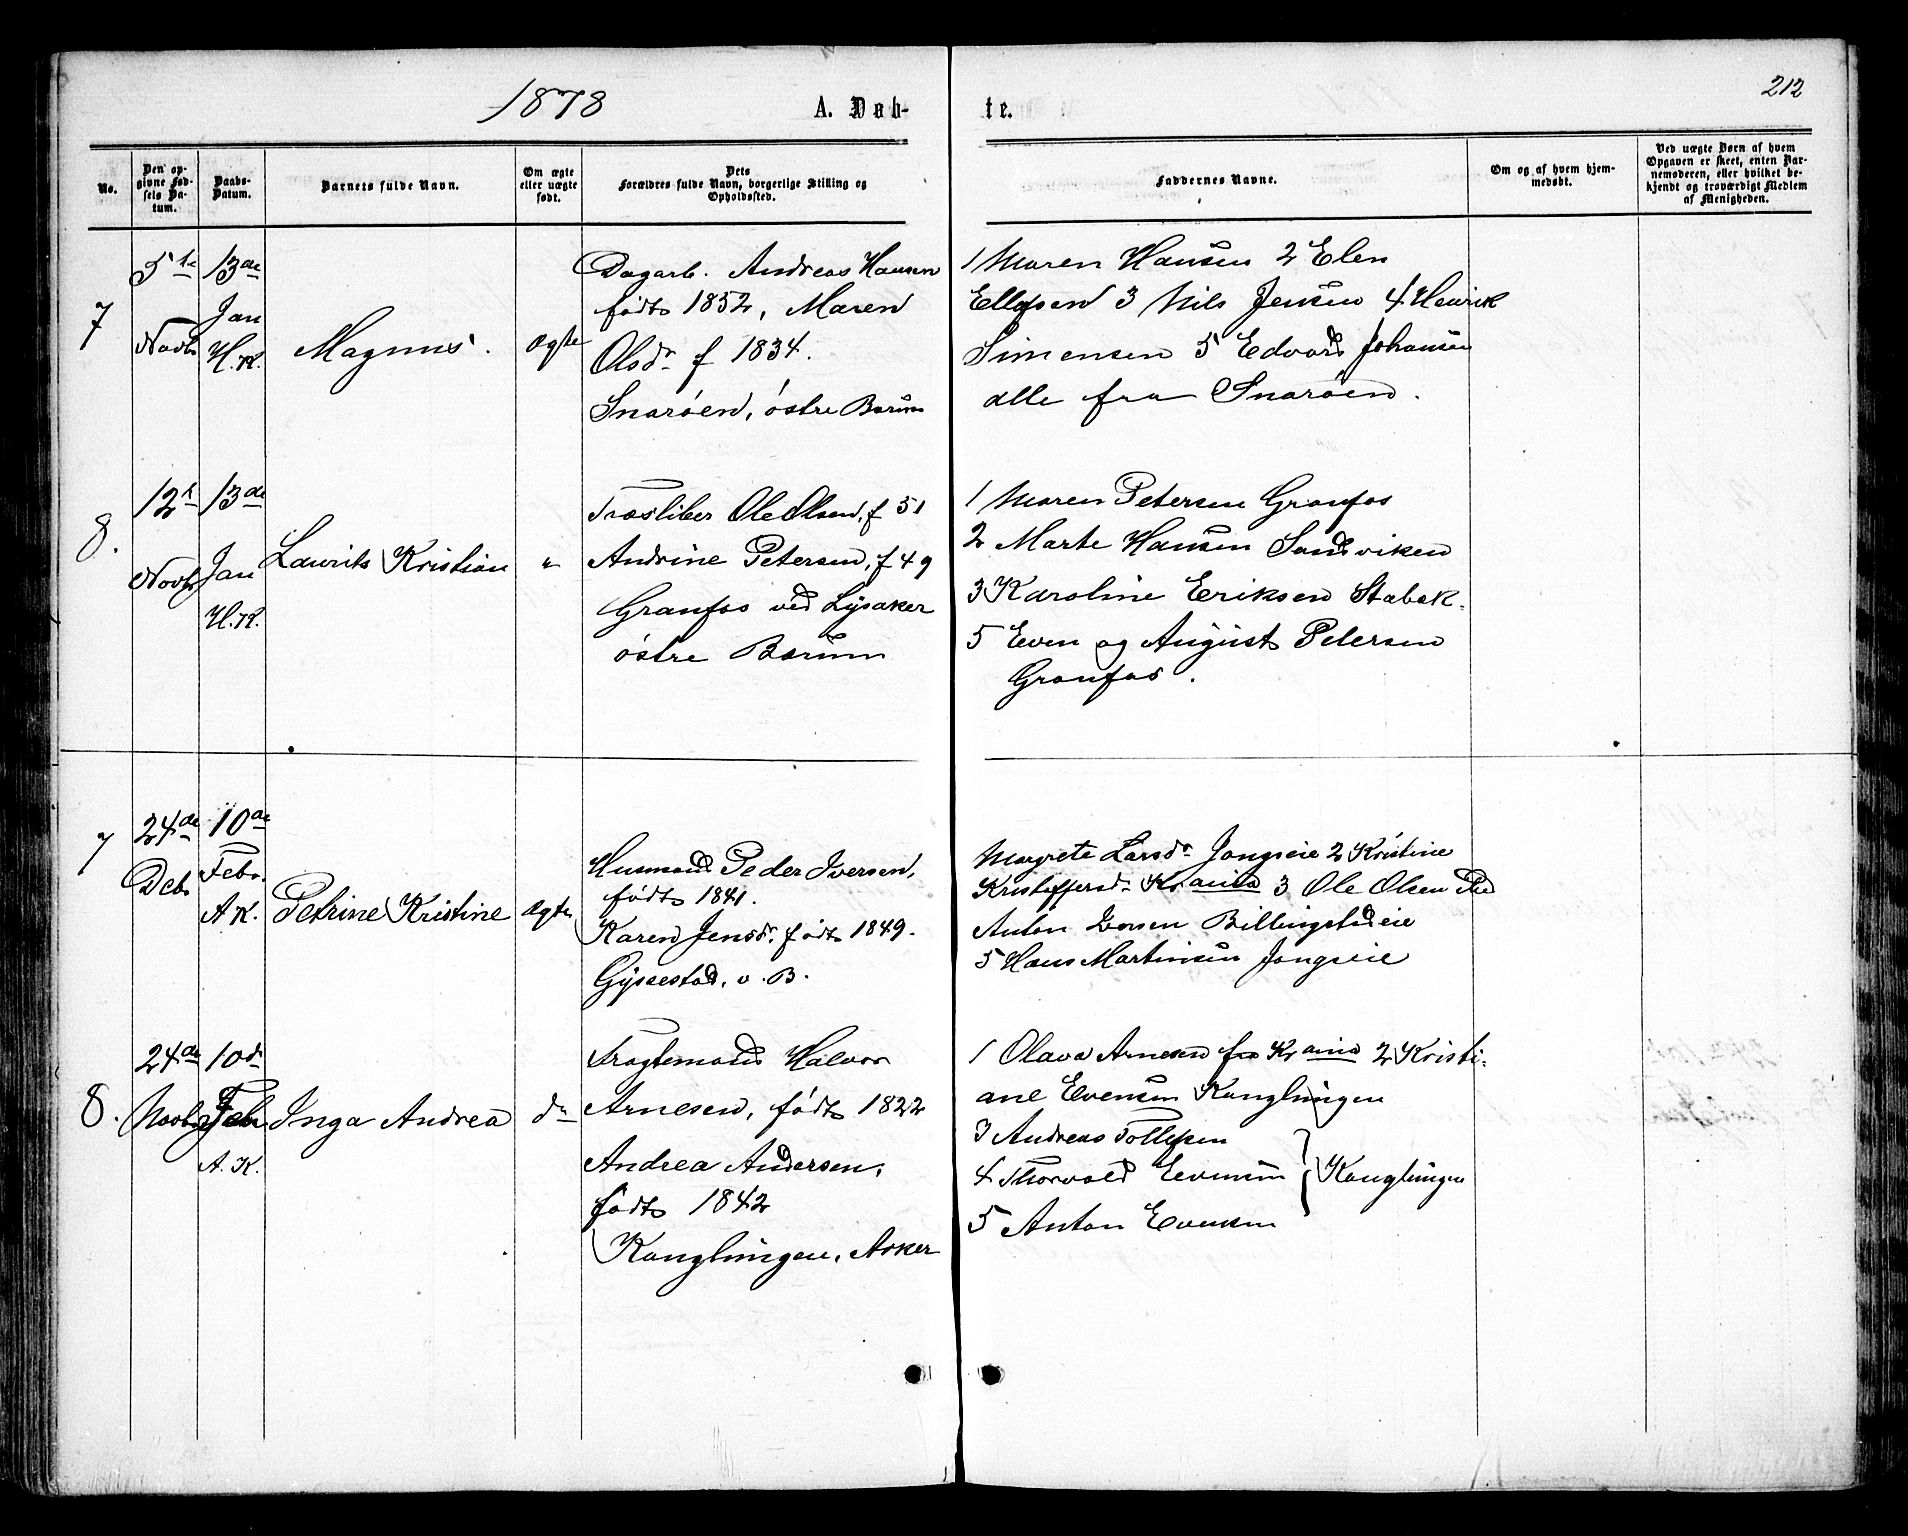 1878
A. Døb-
te.
212
No.
Den op-
givne Fød-
sels Da-
tum.
Daabs-
Datum.
Barnets fulde Navn.
Om ægte
eller uægte
født.
Dets
Forældres fulde Navn, borgerlige Stilling og
Opholdssted.
Faddernes Navne.
Om og af hvem hjem-
medøbt.
Ved uægte Børn af hvem
Opgaven er skeet, enten Bar-
nemoderen, eller hvilket be-
kjendt og troværdigt Medlem
af Menigheden.
7
5te
Novbr
13de
Jan
H.K.
Magnus.
ægte
Dagarb. Andreas Hansen
født 1852, Maren
Olsdr f 1834.
Snarøen, østre Bærum
1 Maren Hansen 2 Elen
Ellefsen 3 Nils Jensen 4 Henrik
Simensen 5 Edvard Johansen
alle fra Snarøen.
8.
12te
Novbr
13de
Jan
H.K.
Laurits Kristian
"
Træsliber Ole Olsen, f 51
Andrine Petersen, f 49
Granfos ved Lysaker
østre Bærum
1 Maren Petersen Granfos
2 Marte Hansen Sandviken
3 Karoline Eriksen Stabæk.
5 Even og August Petersen
Granfos.
7
24de
Debr
10de
Febr.
A.K.
Petrine Kristine
ægte
Husmand Peder Iversen,
født 1841.
Karen Jensdr. født 1849.
Gyssestad, v. B.
Margrete Larsdr Jongseie 2 Kristine
Kristoffersdr Krania 3 Ole Olsen
Anton Billingstadeie
5 Hans Martinsen Jongseie
8.
24de
Novbr
10de
Feb
A.K.
Inga Andrea
do
Fragtemand Halvor
Arnesen, født 1822
Andrea Andersen,
født 1842
Konglungen, Asker
1 Olava Arnesen fra Krania 2 Kristi-
ane Evensen Konglungen
3 Andreas Tollefsen
4 Thorvald Evensen } Konglungen
5 Anton Evensen